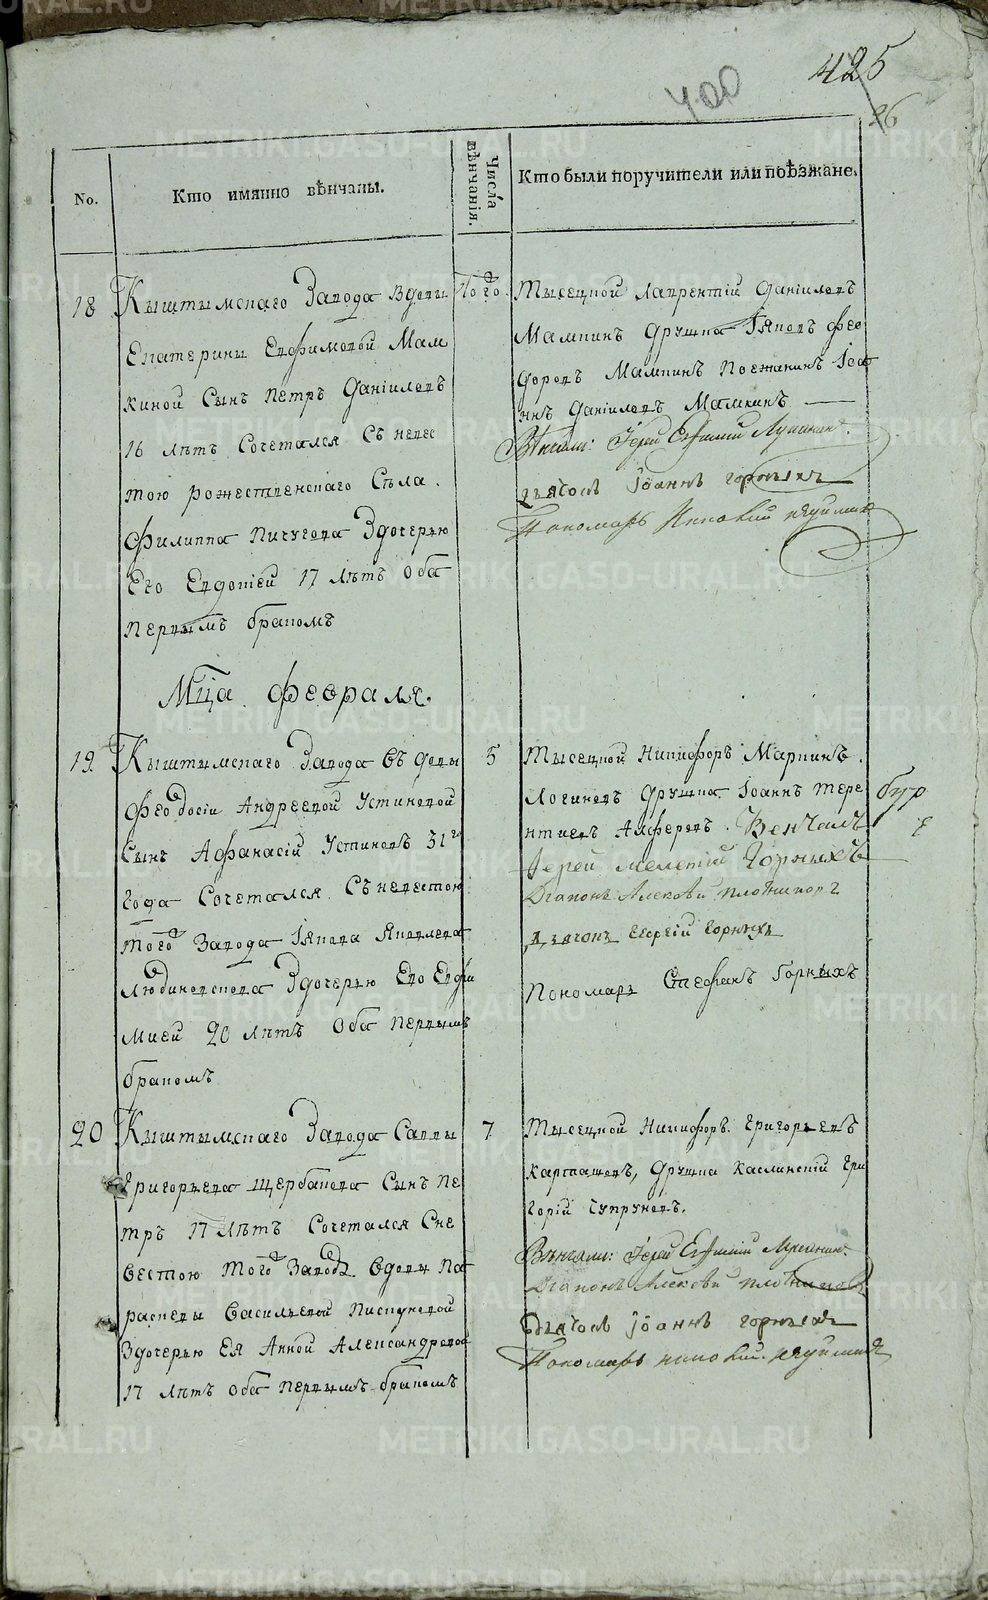 425
400
26
No.
Кто имянно вѣнчаны.
Числа вѣнчанія.
Кто были поручители или поѣзжане.
18
Кыштымскаго Завода вдовы
Екатерины Евфимовой Мам
киной Сынъ Петръ Даніиловъ
16 лѣтъ Сочетался Съ невес
тою рожественскаго Села
Филиппа Пичугова Здочерью
Его Евдокіей 17 лѣтъ оба
первымъ бракомъ
Того
Тысецкой Лаврентій Даніиловъ
Мамкинъ Друшка Іяковъ Фео
доровъ Мамкинъ Поезжанинъ Іоа
ннъ Даніиловъ Мамкинъ
Вѣнчали: Іерей Евфимій
дьячокъ Іоаннъ горныхъ
Пономарь
Мца Февраля.
19.
Кыштымскаго Завода Въдовы
Феодосіи Андреевой Устиновой
Сынъ Афанасій Устиновъ 31го
года Сочетался Съ невестою
того Завода Іякова Яковлева
Здочерью Его Евфи
мией 20 лѣтъ Оба первымъ
бракомъ
5
Тысецкой Никифоръ Маркинъ
Логиновъ Друшка Іоаннъ Тере
нтиевъ Алферовъ. Венчалъ
Іерей мелетій Горныхъ
Діаконъ Алексѣй плотниковъ
дьячокъ Георгій Горныхъ
Пономарь Стефанъ Горныхъ
20
Кыштымскаго Завода Саввы
Григорьева Щербакова Сынъ Пе
тръ 17 лѣтъ Сочетался Сне
вестою того Завода Вдовы Па
расковы Васильевой Пискуновой
Здочерью Ея Анной Александровой
17 лѣтъ оба первымъ бракомъ
7
Тысецкой Никифоръ Григорьевъ
Карташовъ, Друшка Каслинскій Гри
горій Супруновъ.
Вѣнчали: Іерей Евфимій
Діаконъ Алексѣй плотниковъ
Дьячокъ Іоаннъ горныхъ
Пономарь
METRIKI.GASO-URAL.RU